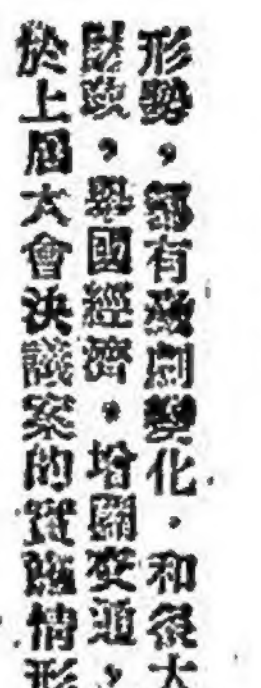 形勢，都有急劇變化，和很大
財政，舉國經濟，增關交通，
於上屆大會決議案的實施情形